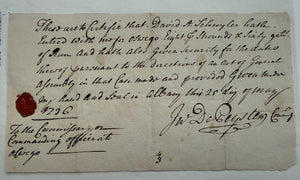 These are to Certifie that David A. Schuyler hath
Entred with me for Oswego Eight & Strouds & Sixty gall.
of Rum and hath also given Security for the duties
thereof pursuant to the directions of an act of General
Assembly in that Case made and provided Given under
my hand and Seal in Albany this 20 day of May
1736
Jno De Peyster
To the Commissary or
Commanding officer att
Oswego